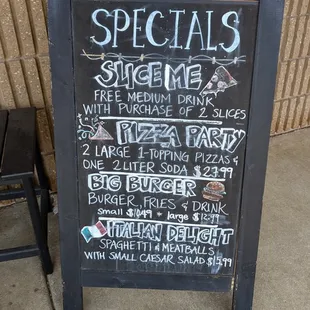 SPECIALS
SLICE ME
FREE MEDIUM DRINK
WITH PURCHASE OF 2 SLICES
PIZZA PARTY
2 LARGE 1-TOPPING PIZZAS &
ONE 2 LITER SODA $27.99
BIG BURGER
BURGER, FRIES & DRINK
Small $10.49 • large $12.99
ITALIAN DELIGHT
SPAGHETTI & MEATBALLS
WITH SMALL CAESAR SALAD $15.99